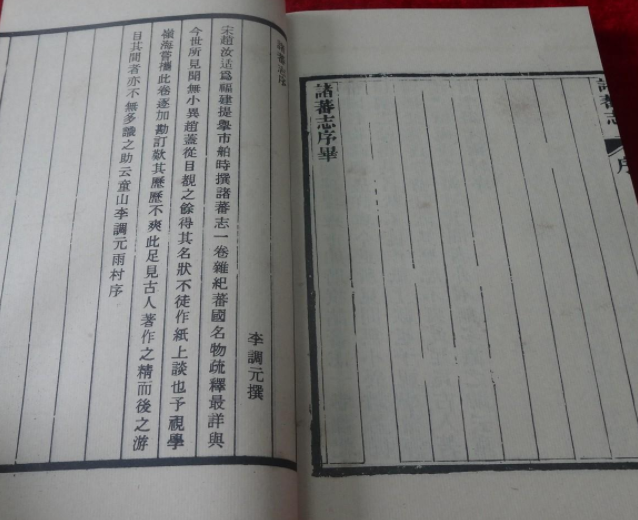 諸蕃志 序
諸蕃志序畢
諸蕃志序
李調元撰
宋趙汝适爲福建提舉市舶時撰諸蕃志一卷雜紀蕃國名物疏釋最詳與
今世所見聞無小異趙蓋從目覩之餘得其名狀不徒作紙上談也予視學
嶺海嘗攜此卷逐加勘訂歎其歷歷不爽此足見古人著作之精而後之游
目其間者亦不無多識之助云童山李調元雨村序